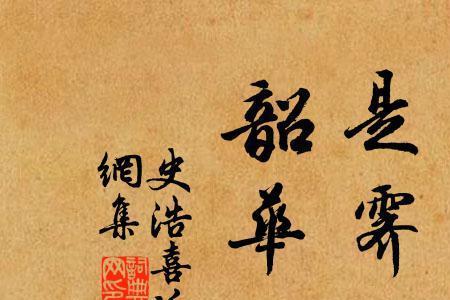 是霽
韶華
史浩喜
網集